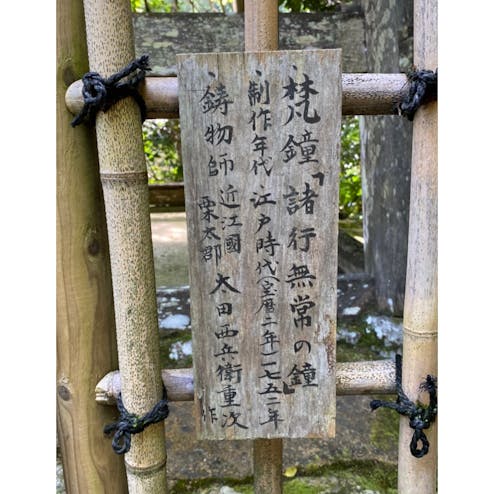 、梵鐘「諸行無常の鐘」
、制作年代 江戸時代(宝暦二年)一七五二年
、鋳物師 近江國栗太郡 太田西兵衛重次 作